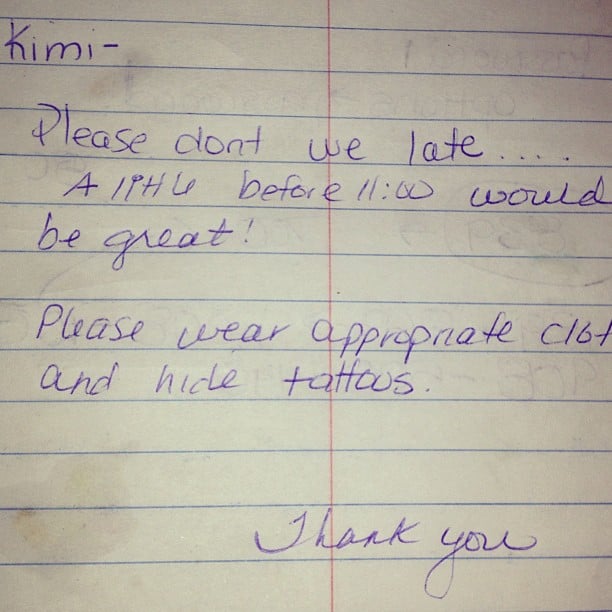 Kimi-
Please dont we late.....
A little before 11:00 would
be great!
Please wear appropriate clot
and hide tattoos.
Thank you